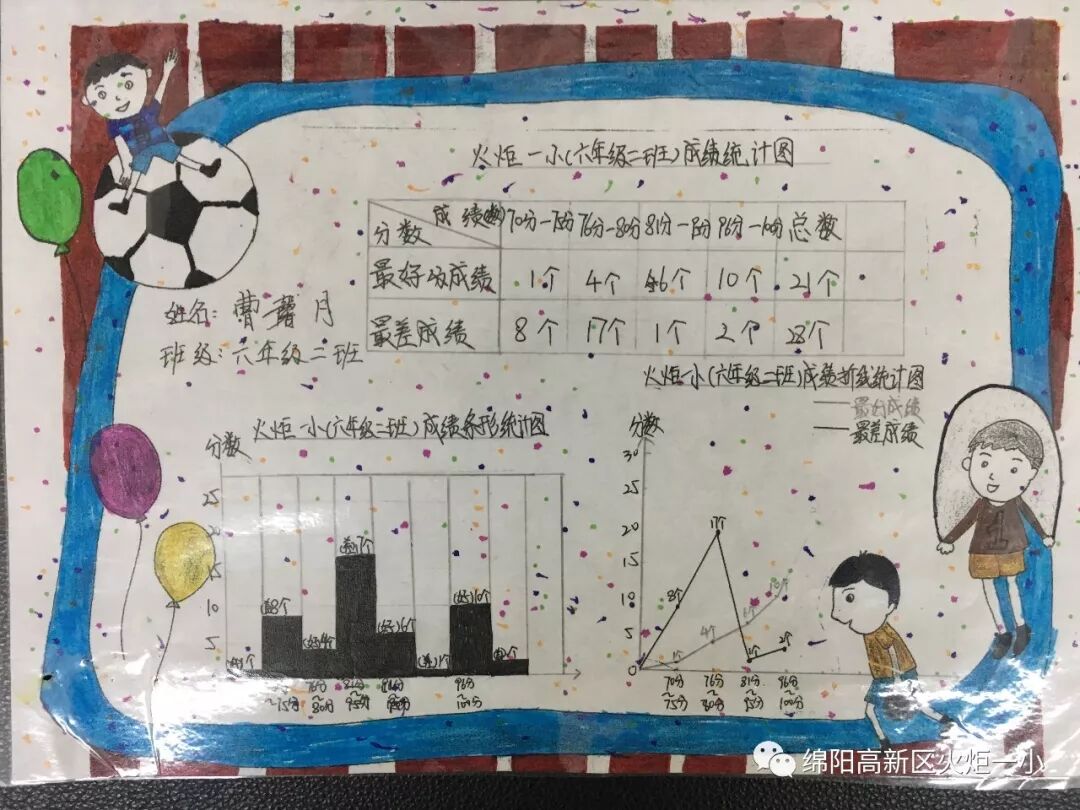 火炬一小(六年级二班)成绩统计图
成绩 分数 70分-75分 76分-80分 81分-95分 96分-100分 总数
最好的成绩 1个 4个 6个 10个 21个
最差成绩 8个 17个 1个 2个 28个
姓名:曹馨月
班级:六年级二班
火炬一小(六年级二班)成绩折线统计图
最好成绩
最差成绩
火炬一小(六年级二班)成绩条形统计图
分数
25
10
5
0
(好)4个
(差)17个
(好)6个
(差)1个
(好)10个
~75分 76分~80分 81分~95分 96分~100分
分数
30
25
20
15
10
5
0
8个
17个
1个
2个
1个
4个
6个
10个
70分~75分 76分~80分 81分~95分 96分~100分
绵阳高新区火炬一小